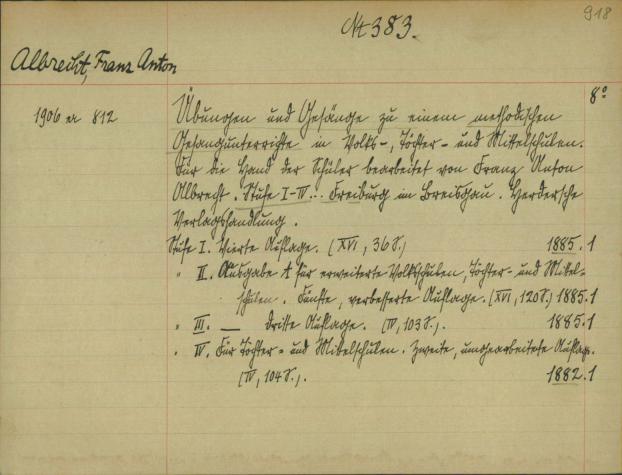 918
Nt 383.
Albrecht, Franz Anton
8°
1906 er 812
Übungen und Gesänge zu einem methodischen
Gesangunterrichte in Volks-, Töchter- und Mittelschulen.
Für die Hand der Schüler bearbeitet von Franz Anton
Albrecht. Stufe I-IV... Freiburg im Breisgau. Herdersche
Verlagshandlung.
Stufe I. Vierte Auflage. (XVI, 36 S.) 1885.1
" II. Ausgabe A für erweiterte Volksschulen, Töchter- und Mittel-
schulen. Fünfte, verbesserte Auflage. (XVI, 120 S.) 1885.1
" III. — Dritte Auflage. (IV, 103 S.). 1885.1
" IV. Für Töchter- und Mittelschulen. Zweite, umgearbeitete Auflage.
(IV, 104 S.). 1882.1